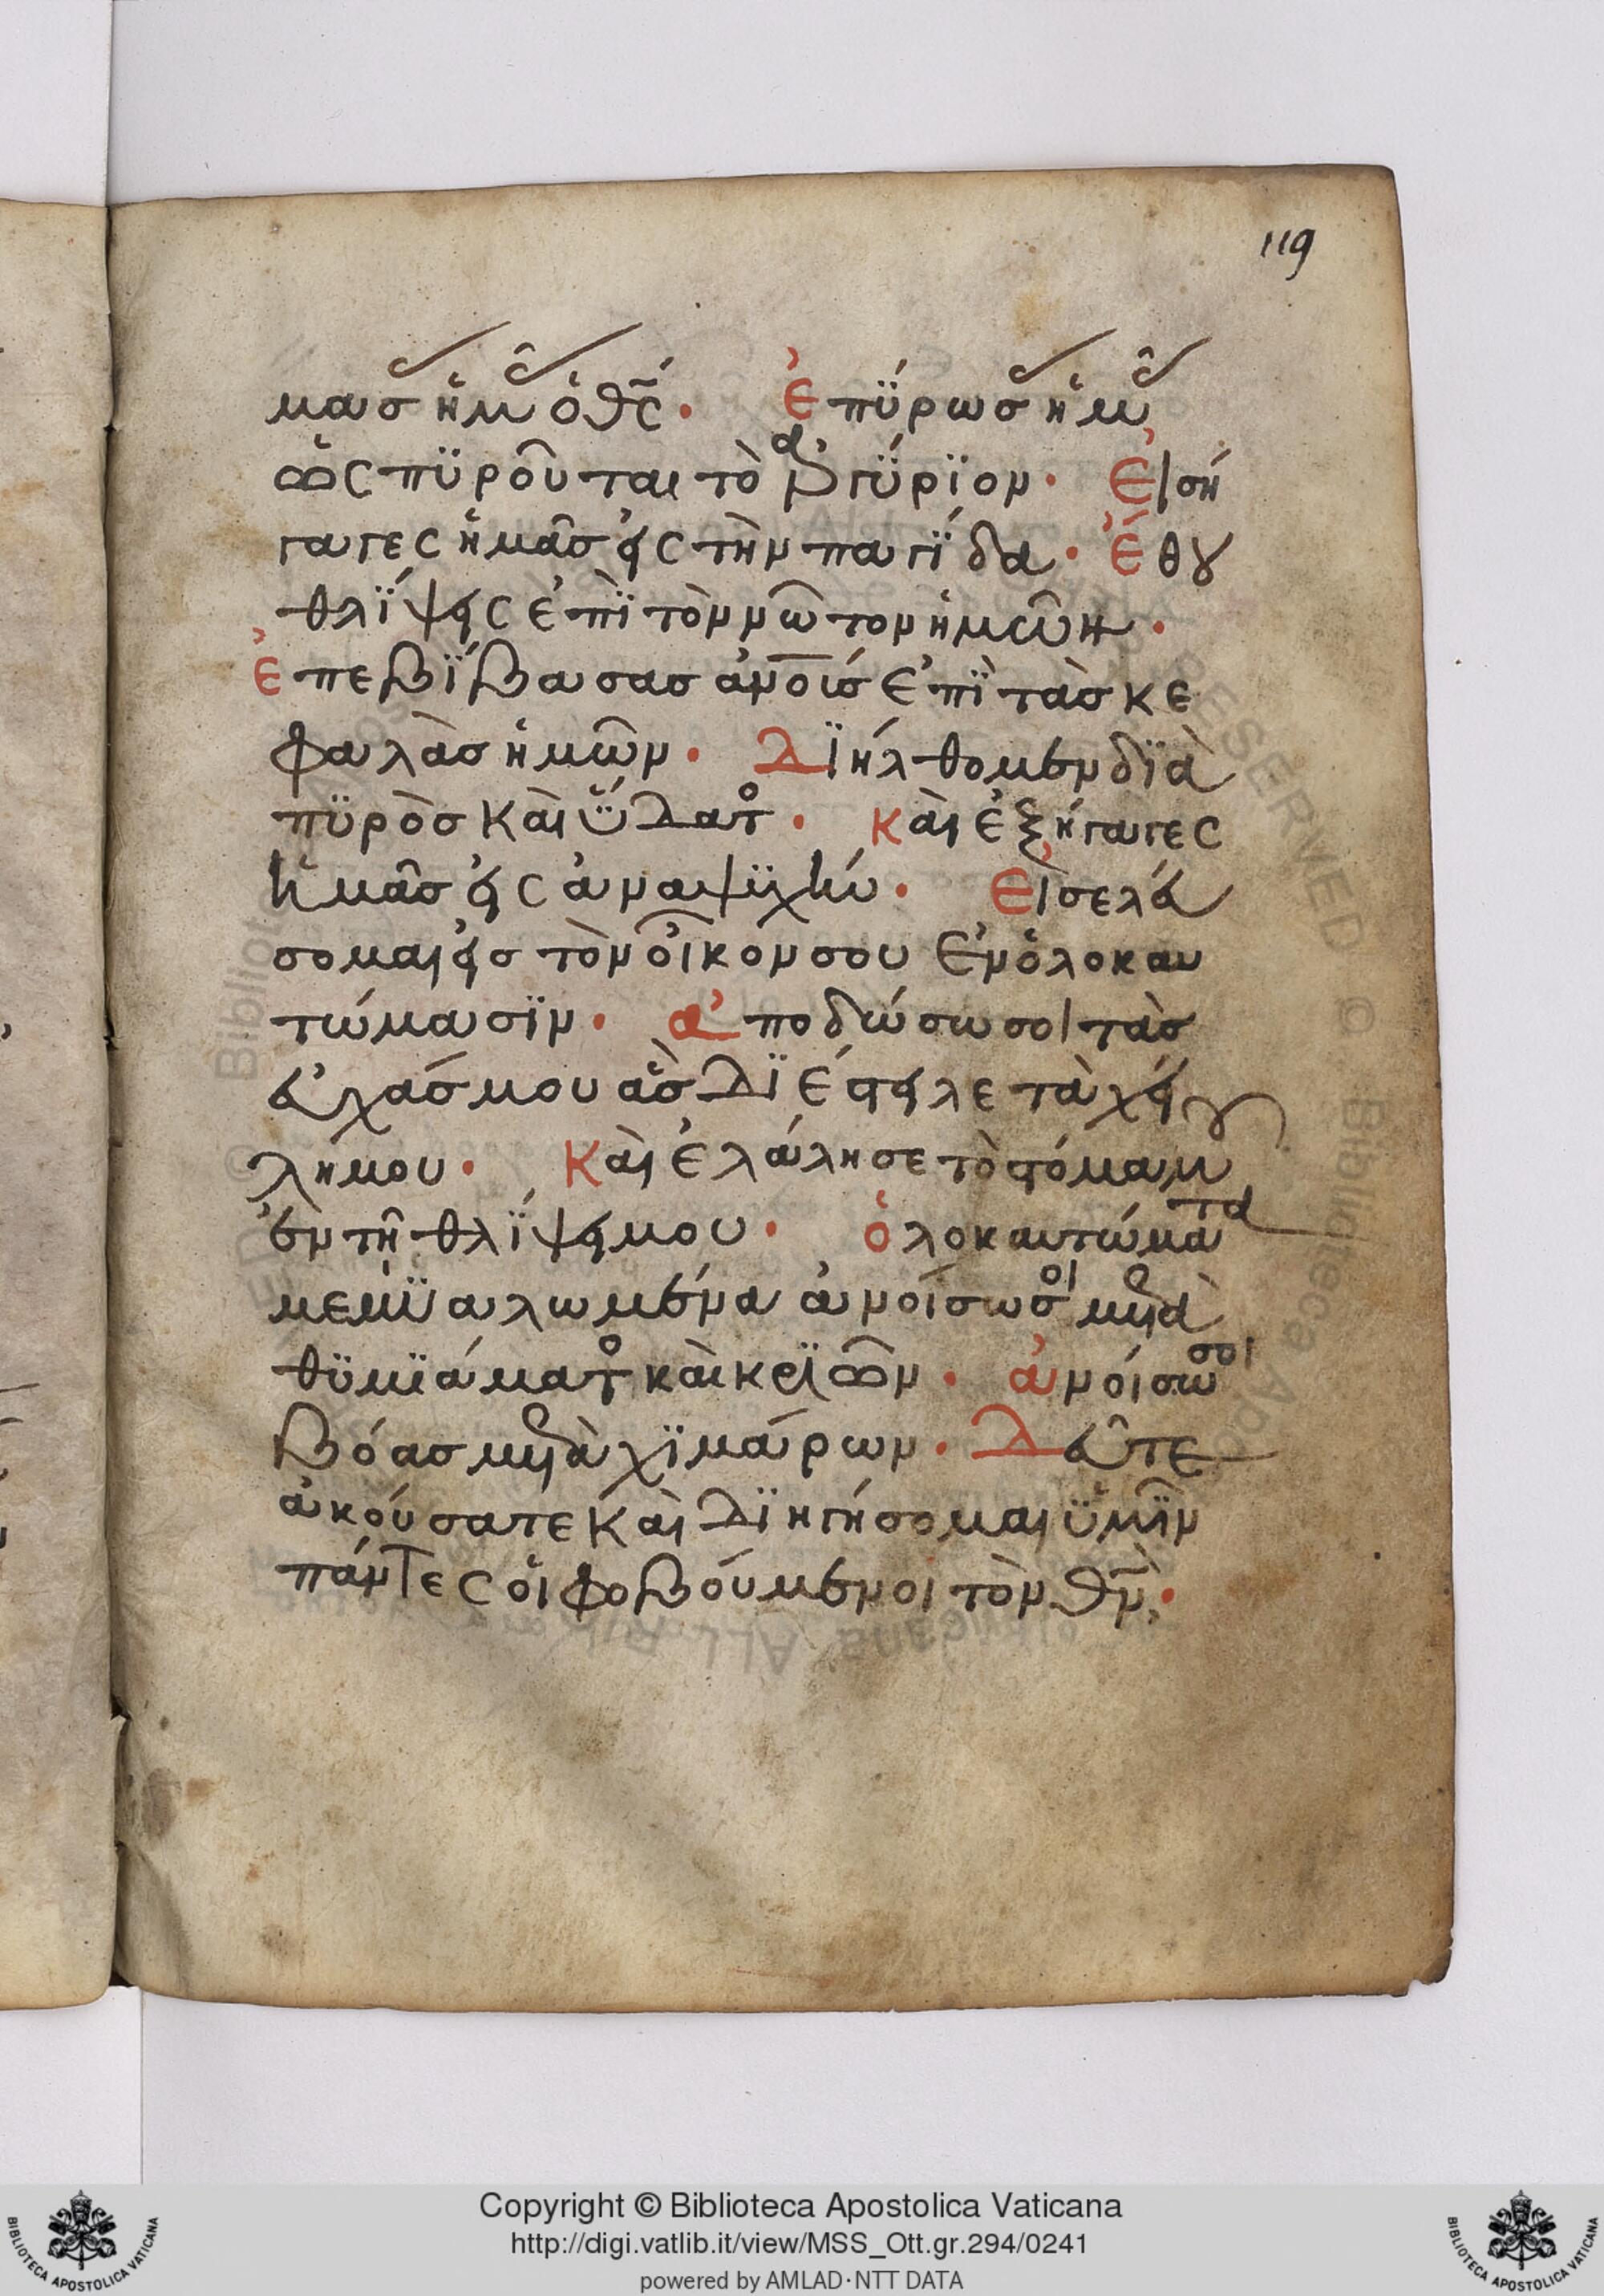 119
μασ ἡμᾶς ὁ θ̅ς̅· ἐπΰρωσας ἡμᾶς
ὡς πϋροῦται τὸ ἀργΰριον· Εἰσή
γαγες ἡμᾶσ εἰς τὴν παγΐδα· ἔθου
θλΐψεις ἐπῒ τὸν νῶτον ἡμῶν·
ἐπεβΐβασασ ἀ̅ν̅ο̅ι̅σ̅ ἐπῒ τὰσ κε
φαλὰσ ἡμῶν· Διήλθομεν διὰ
πϋρὸσ καὶ ὕδατος· καὶ ἐξήγαγες
ἡμᾶσ εἰς ἀναψϋχήν· Εἰσελεύ
σομαι εἰσ τὸν οἶκον σου ἐν ὁλοκαυ
τώμασϊν· ἀποδώσω σοι τὰσ
εὐχάσ μου ἃσ διέστειλε τὰ χεί
λη μου· Καὶ ἐλάλησε τὸ στόμα μου
ἐν τῆ θλΐψει μου· ὁλοκαυτώματα
μεμϋαλωμένα ἀνοίσω σοι μετὰ
θϋμϊάματος καὶ κρϊῶν· ἀνοίσω σοι
βόασ μετὰ χϊμάρων· Δεῦτε
ἀκούσατε καὶ διηγήσομαι ὑμῖν
πάντες οἱ φοβούμενοι τὸν θ̅ν̅·
Copyright © Biblioteca Apostolica Vaticana
http://digi.vatlib.it/view/MSS_Ott.gr.294/0241
powered by AMLAD·NTT DATA
BIBLIOTECA APOSTOLICA VATICANA
BIBLIOTECA APOSTOLICA VATICANA